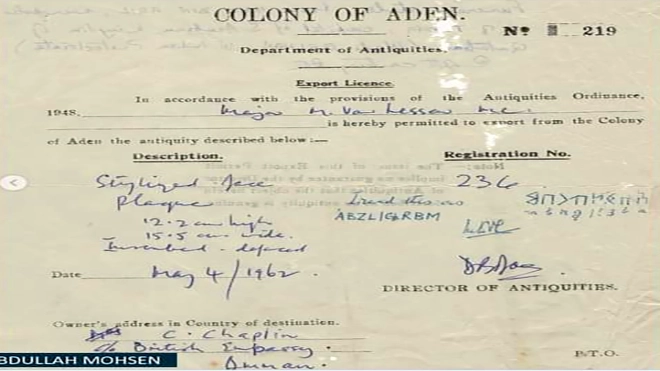 COLONY OF ADEN.
Nº 219
Department of Antiquities.
Export Licence.
In accordance with the provisions of the Antiquities Ordinance,
1948, Major M. Van Lessen M.C.
is hereby permitted to export from the Colony
of Aden the antiquity described below:—
Description. Registration No.
Stylized face 236
plaque I read this as
ABZL/GRBM
12.2 cm high
15.5 cm wide.
Inscribed - defaced
Date May 4/1962.
DIRECTOR OF ANTIQUITIES.
Owner's address in Country of destination.
C. Chaplin
c/o British Embassy.
Amman.
P.T.O.
BDULLAH MOHSEN